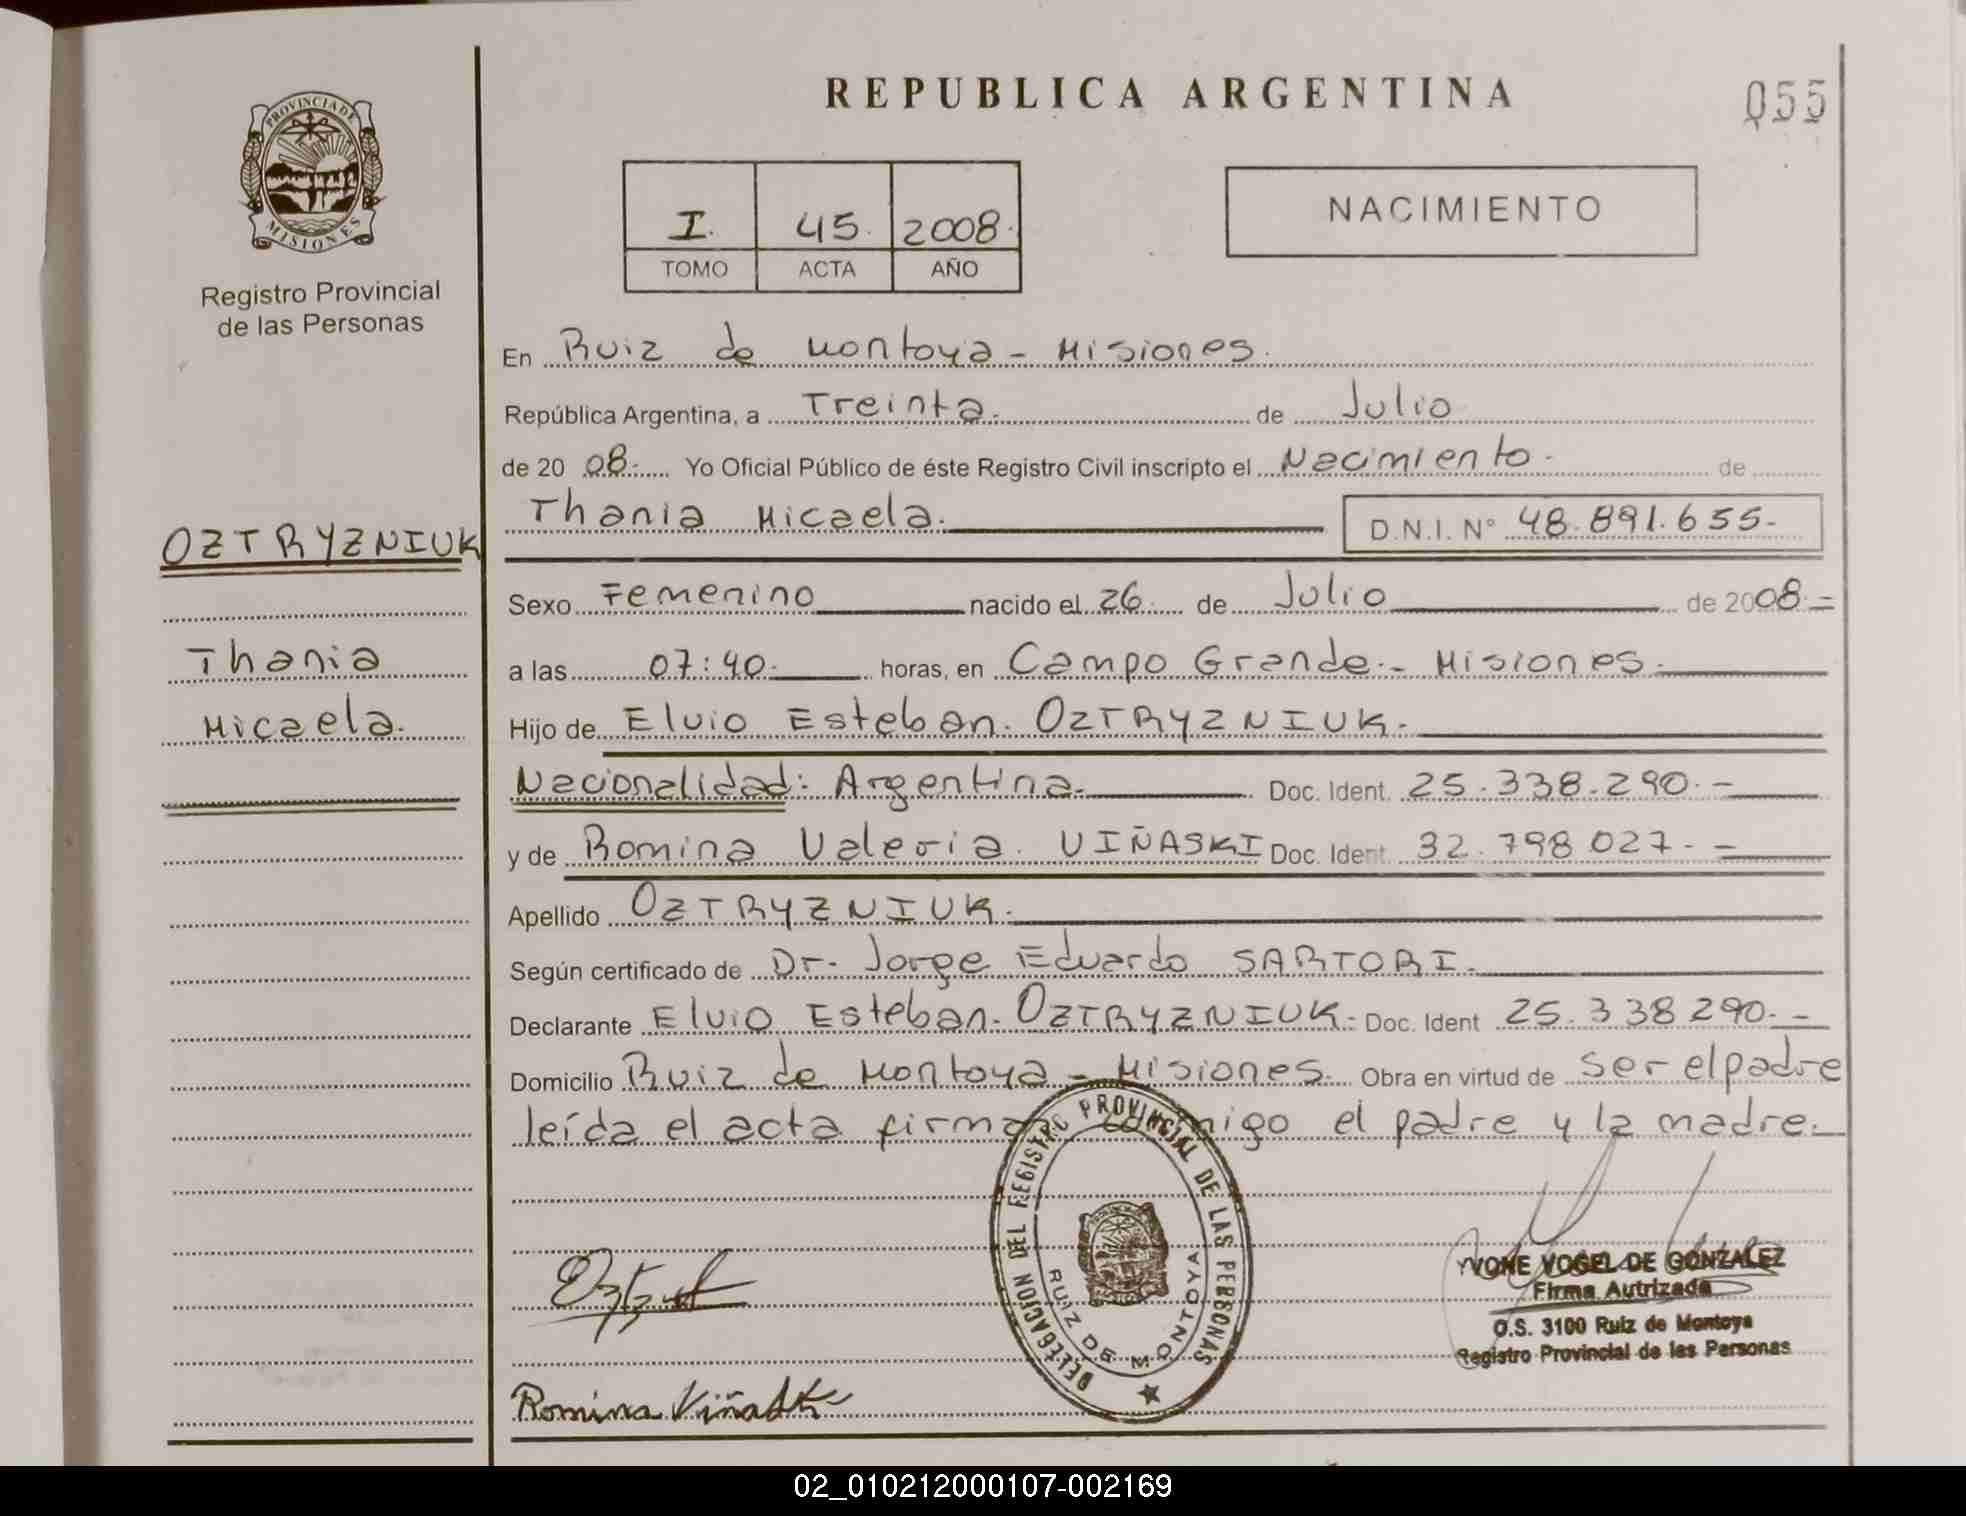 REPUBLICA ARGENTINA
055
PROVINCIA DE
MISIONES
Registro Provincial
de las Personas
I. 45. 2008.
TOMO ACTA AÑO
NACIMIENTO
En Ruiz de Montoya - Misiones.
República Argentina, a Treinta. de Julio
de 20 08. Yo Oficial Público de éste Registro Civil inscripto el Nacimiento. de
Thania Micaela. D.N.I. N° 48.891.655.-
OZTRYZNIUK
Thania
Micaela.
Sexo Femenino nacido el 26. de Julio de 2008.-
a las 07:40. horas, en Campo Grande.- Misiones.
Hijo de Elvio Esteban. OZTRYZNIUK.
Nacionalidad: Argentina. Doc. Ident. 25.338.290.-
y de Romina Valeria. VIÑASKI Doc. Ident. 32.798.027.-
Apellido OZTRYZNIUK.
Según certificado de Dr. Jorge Eduardo SARTORI.
Declarante Elvio Esteban. OZTRYZNIUK. Doc. Ident 25.338.290.-
Domicilio Ruiz de Montoya - Misiones. Obra en virtud de ser el padre
leída el acta firma conmigo el padre y la madre.
DELEGACION DEL REGISTRO PROVINCIAL DE LAS PERSONAS
RUIZ DE MONTOYA
YVONE VOGEL DE GONZALEZ
Firma Autrizada
O.S. 3100 Ruiz de Montoya
Registro Provincial de las Personas
Romina Viñaski
02_010212000107-002169